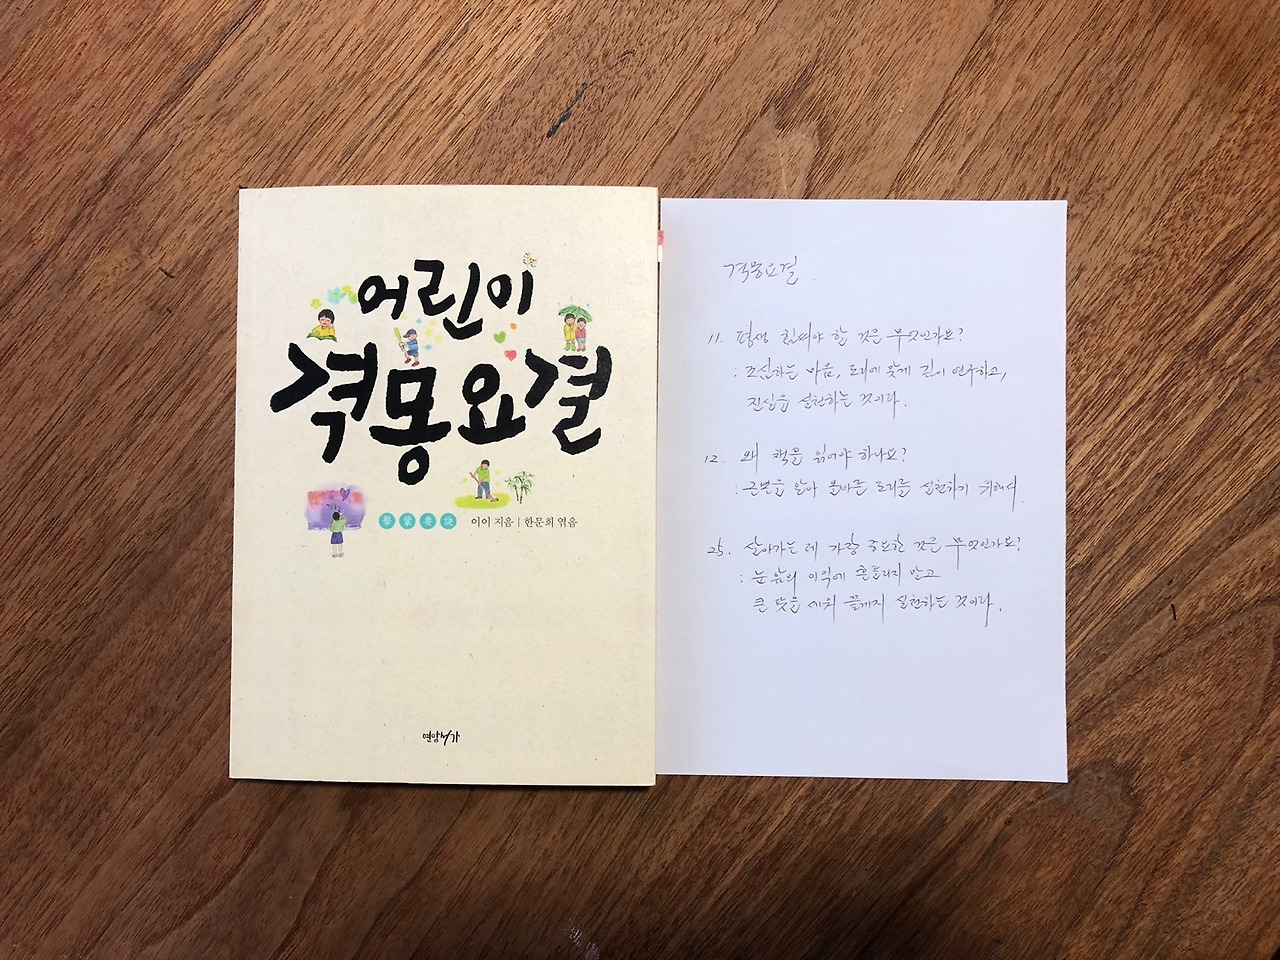 어린이
격몽요결
擊蒙要訣 이이 지음 | 한문희 엮음
연암서가
격몽요결.
11. 평생 힘써야 할 것은 무엇인가요?
: 조심하는 마음, 도리에 맞게 깊이 연구하고,
진실을 실천하는 것이다.
12. 왜 책을 읽어야 하나요?
: 근본을 알아 올바른 도리를 실천하기 위해서.
25. 살아가는 데 가장 중요한 것은 무엇인가요?
: 눈 앞의 이익에 흔들리지 말고
큰 뜻을 세워 끝까지 실천하는 것이다.